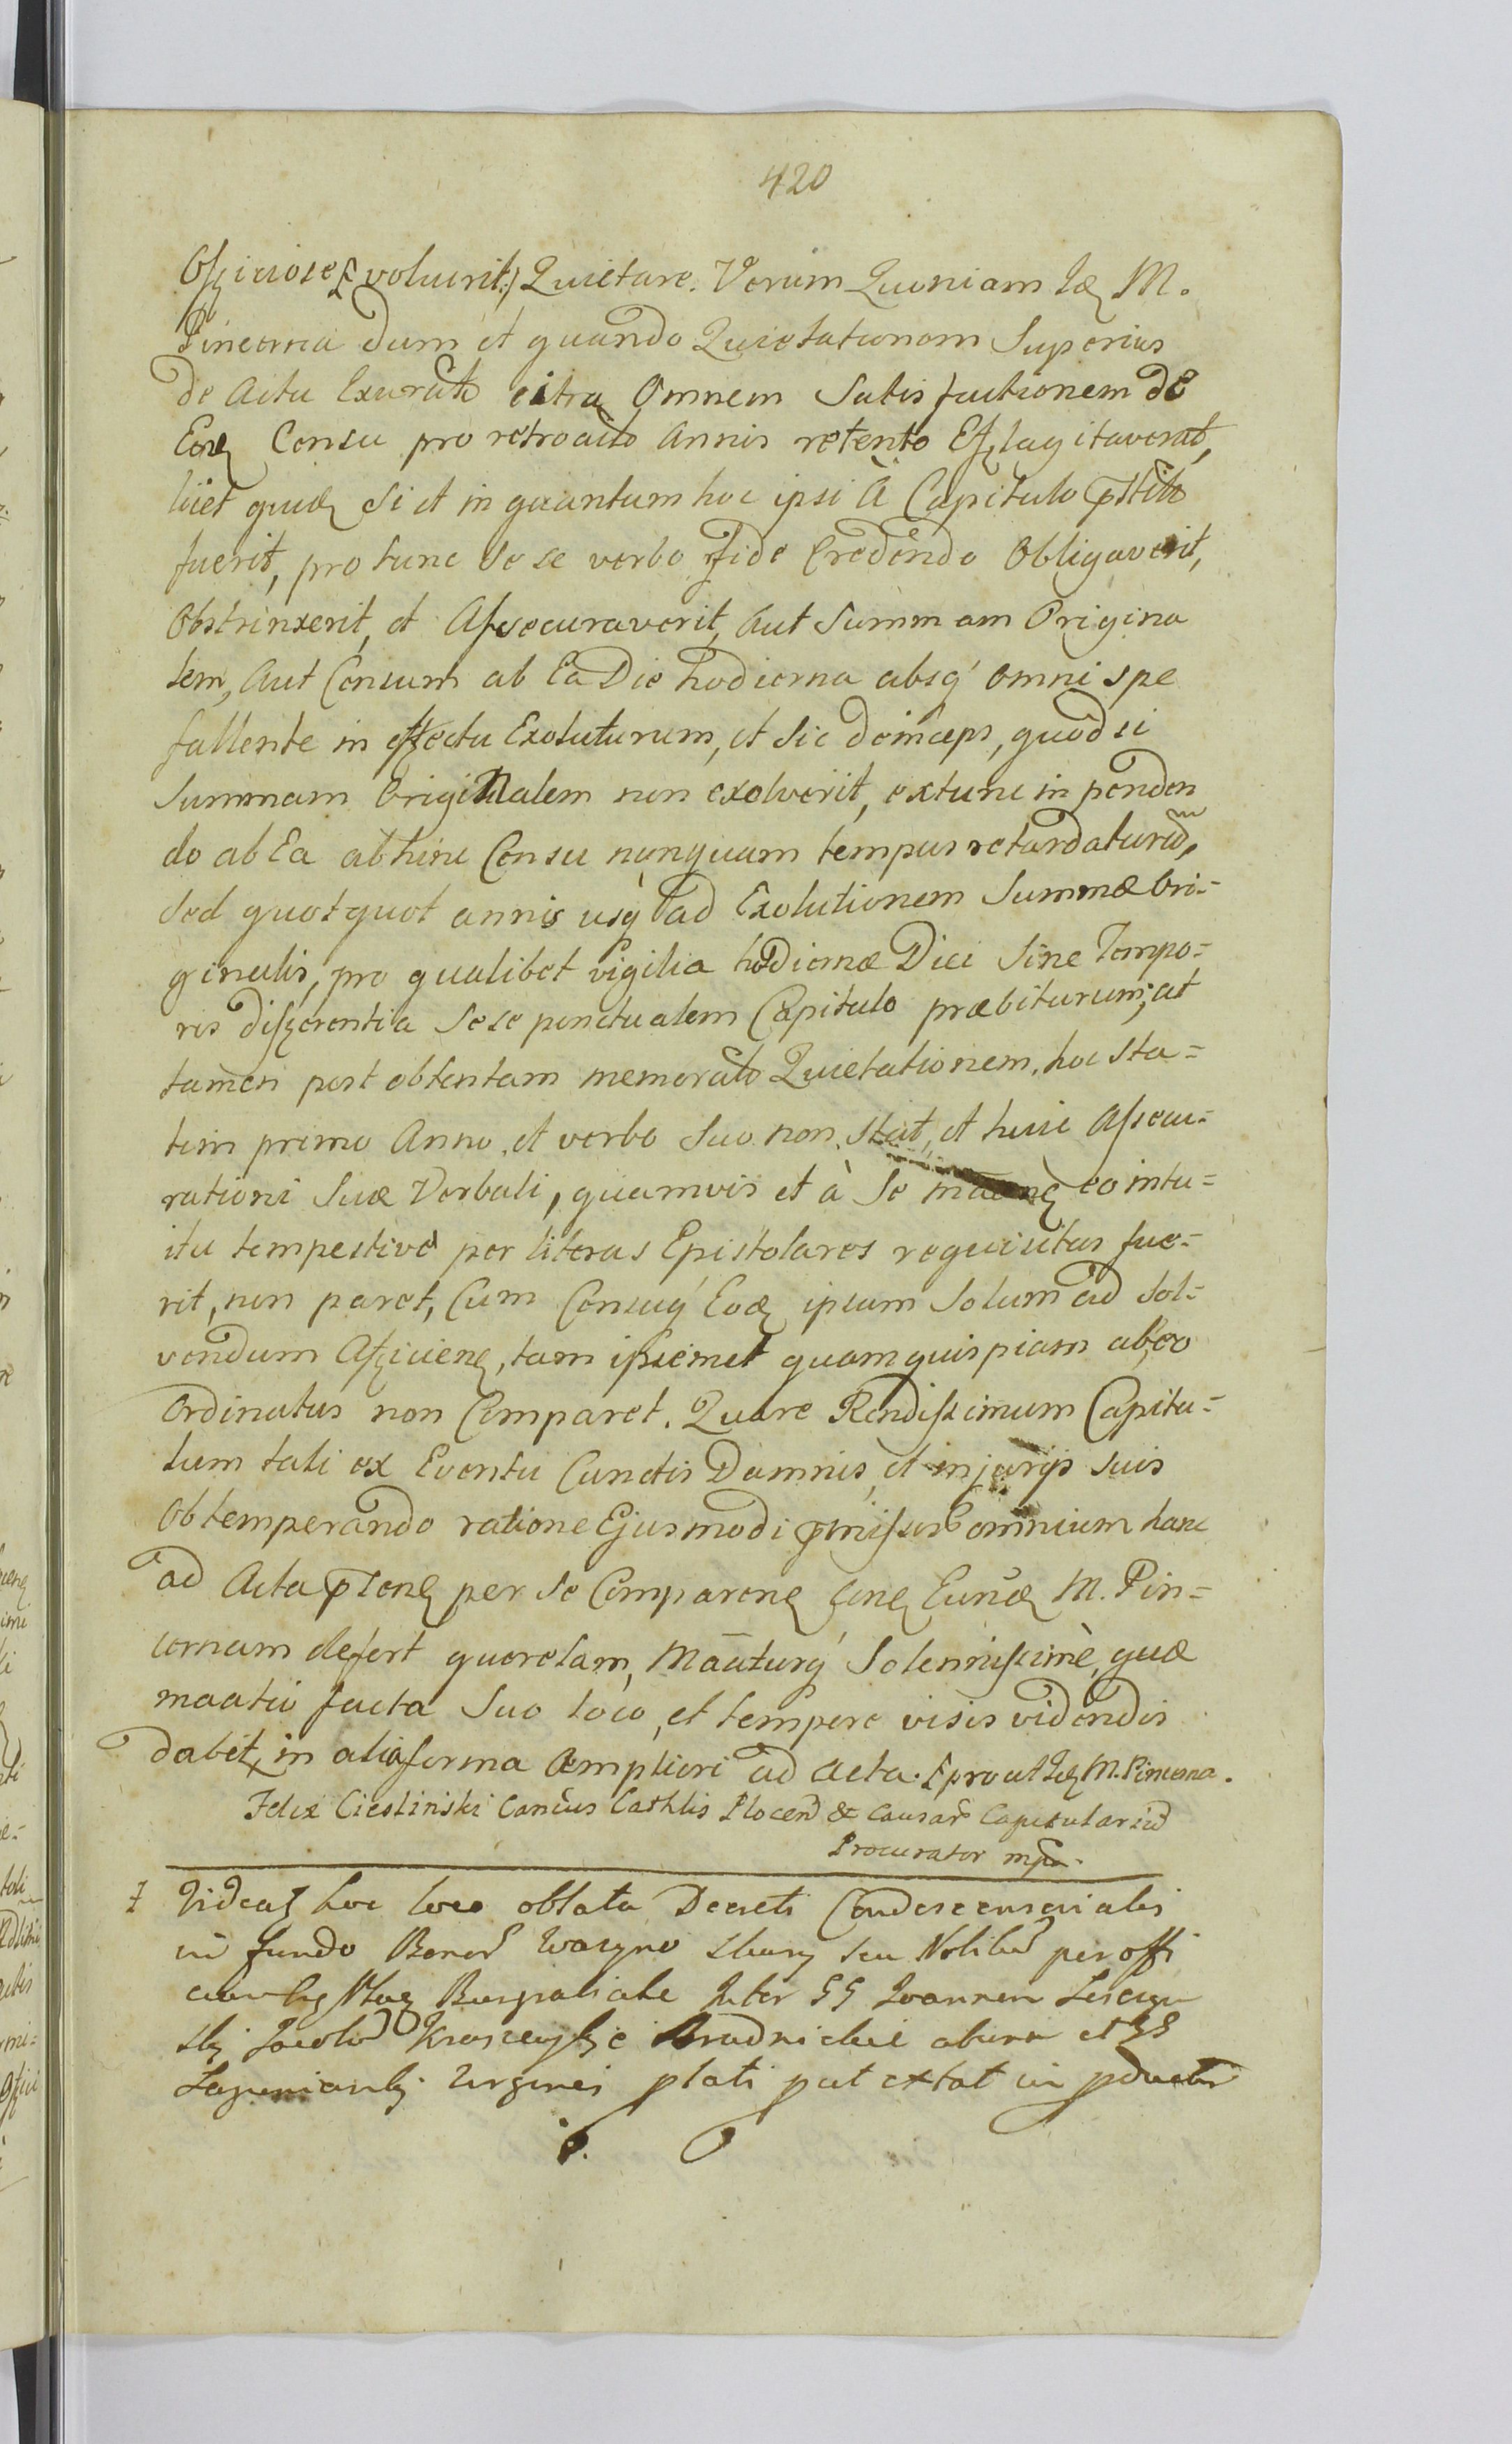 420
Officiose [voluerit:] Quietare. Verum Quoniam Id M.
Pincerna dum et quando Quietationem Superius
de Actu Exarato citra Omnem Satisfactionem de
Eoñ Censu pro retroacto Annis retento Efflagitaverat,
licet quid Si et in quantum hoc ipsi à Capitulo p̄stito
fuerit, pro tunc Se se verbo Fide Credendo Obligaverit,
Obstrinxerit, et Assecuraverit, Aut Summam Origina
lem, Aut Censum ab Ea Die hodierna absq́ omni spe
fallente in effectu Exoluturum, et Sic deinceps, quod si
Summam Originalem non exolverit, extunc in penden
do ab Ea abhinc Censu nunquam tempus retardaturũ,
Sed quotquot annis usq́ ad Exolutionem Summæ Ori=
ginalis, pro qualibet vigilia hodiernæ Diei Sine Tempo=
ris differentia Sese punctualem Capitulo præbiturum; at
tamen post obtentam memorato Quietationem, hoc sta=
tim primo Anno, et verbo Suo non stat, et huic Assecu=
rationi Suæ Verbali, quamvis et à Se eo intu=
itu tempestive per literas Epistolares requisitus fue=
rit, non paret, Cum Censuq́ Eod ipsum Solum ad Sol=
vendum Afficienē, tam ipsemet quam quispiam ab eo
Ordinatus non Comparet. Quare Rendissimum Capitu=
lum tali ex Eventu Cunctis Damnis, et injurijs suis
Obtemperando ratione Ejusmodi p̄missor omnium hanc
ad Acta p̄senē per Se Comparenē Eund M. Pin=
cernam defert querelam, Mañturq́ Solennissimè, quæ
maatio facta Suo loco, et tempore visis videndis
dabit, in alia forma Ampliori ad Acta. [prout Id M. Pincerna.
Felix Ciesliński Cancus Cathlis Plocen & Causar Capitulariũ
Procurator mpa.
‡ Videat hoc loco oblata Decreti Condescensorialis
in fundo Bonor seu per offi
inter SS Joannem
et SS
plati put extat in pductis